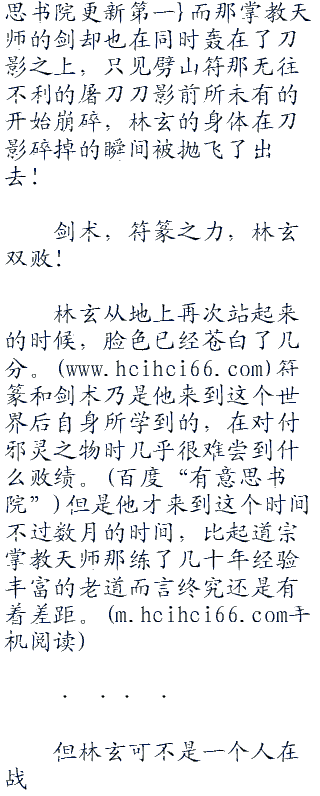 思书院更新第一}而那掌教天
师的剑却也在同时轰在了刀
影之上，只见劈山符那无往
不利的屠刀刀影前所未有的
开始崩碎，林玄的身体在刀
影碎掉的瞬间被抛飞了出
去！
剑术，符篆之力，林玄
双败！
林玄从地上再次站起来
的时候，脸色已经苍白了几
分。(www.hcihci66.com)符
篆和剑术乃是他来到这个世
界后自身所学到的，在对付
邪灵之物时几乎很难尝到什
么败绩。(百度“有意思书
院”)但是他才来到这个时间
不过数月的时间，比起道宗
掌教天师那练了几十年经验
丰富的老道而言终究还是有
着差距。(m.hcihci66.com手
机阅读)
．．．．
但林玄可不是一个人在
战